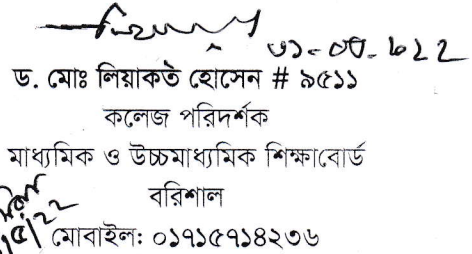 ড. মোঃ লিয়াকত হোসেন # ৯৫১১
কলেজ পরিদর্শক
মাধ্যমিক ও উচ্চমাধ্যমিক শিক্ষাবোর্ড
বরিশাল
মোবাইল: ০১৭১৫৭১৪২৩৬